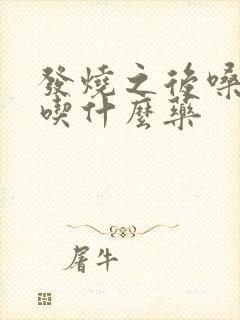 發燒之後嗓
喫什麼藥
屠牛